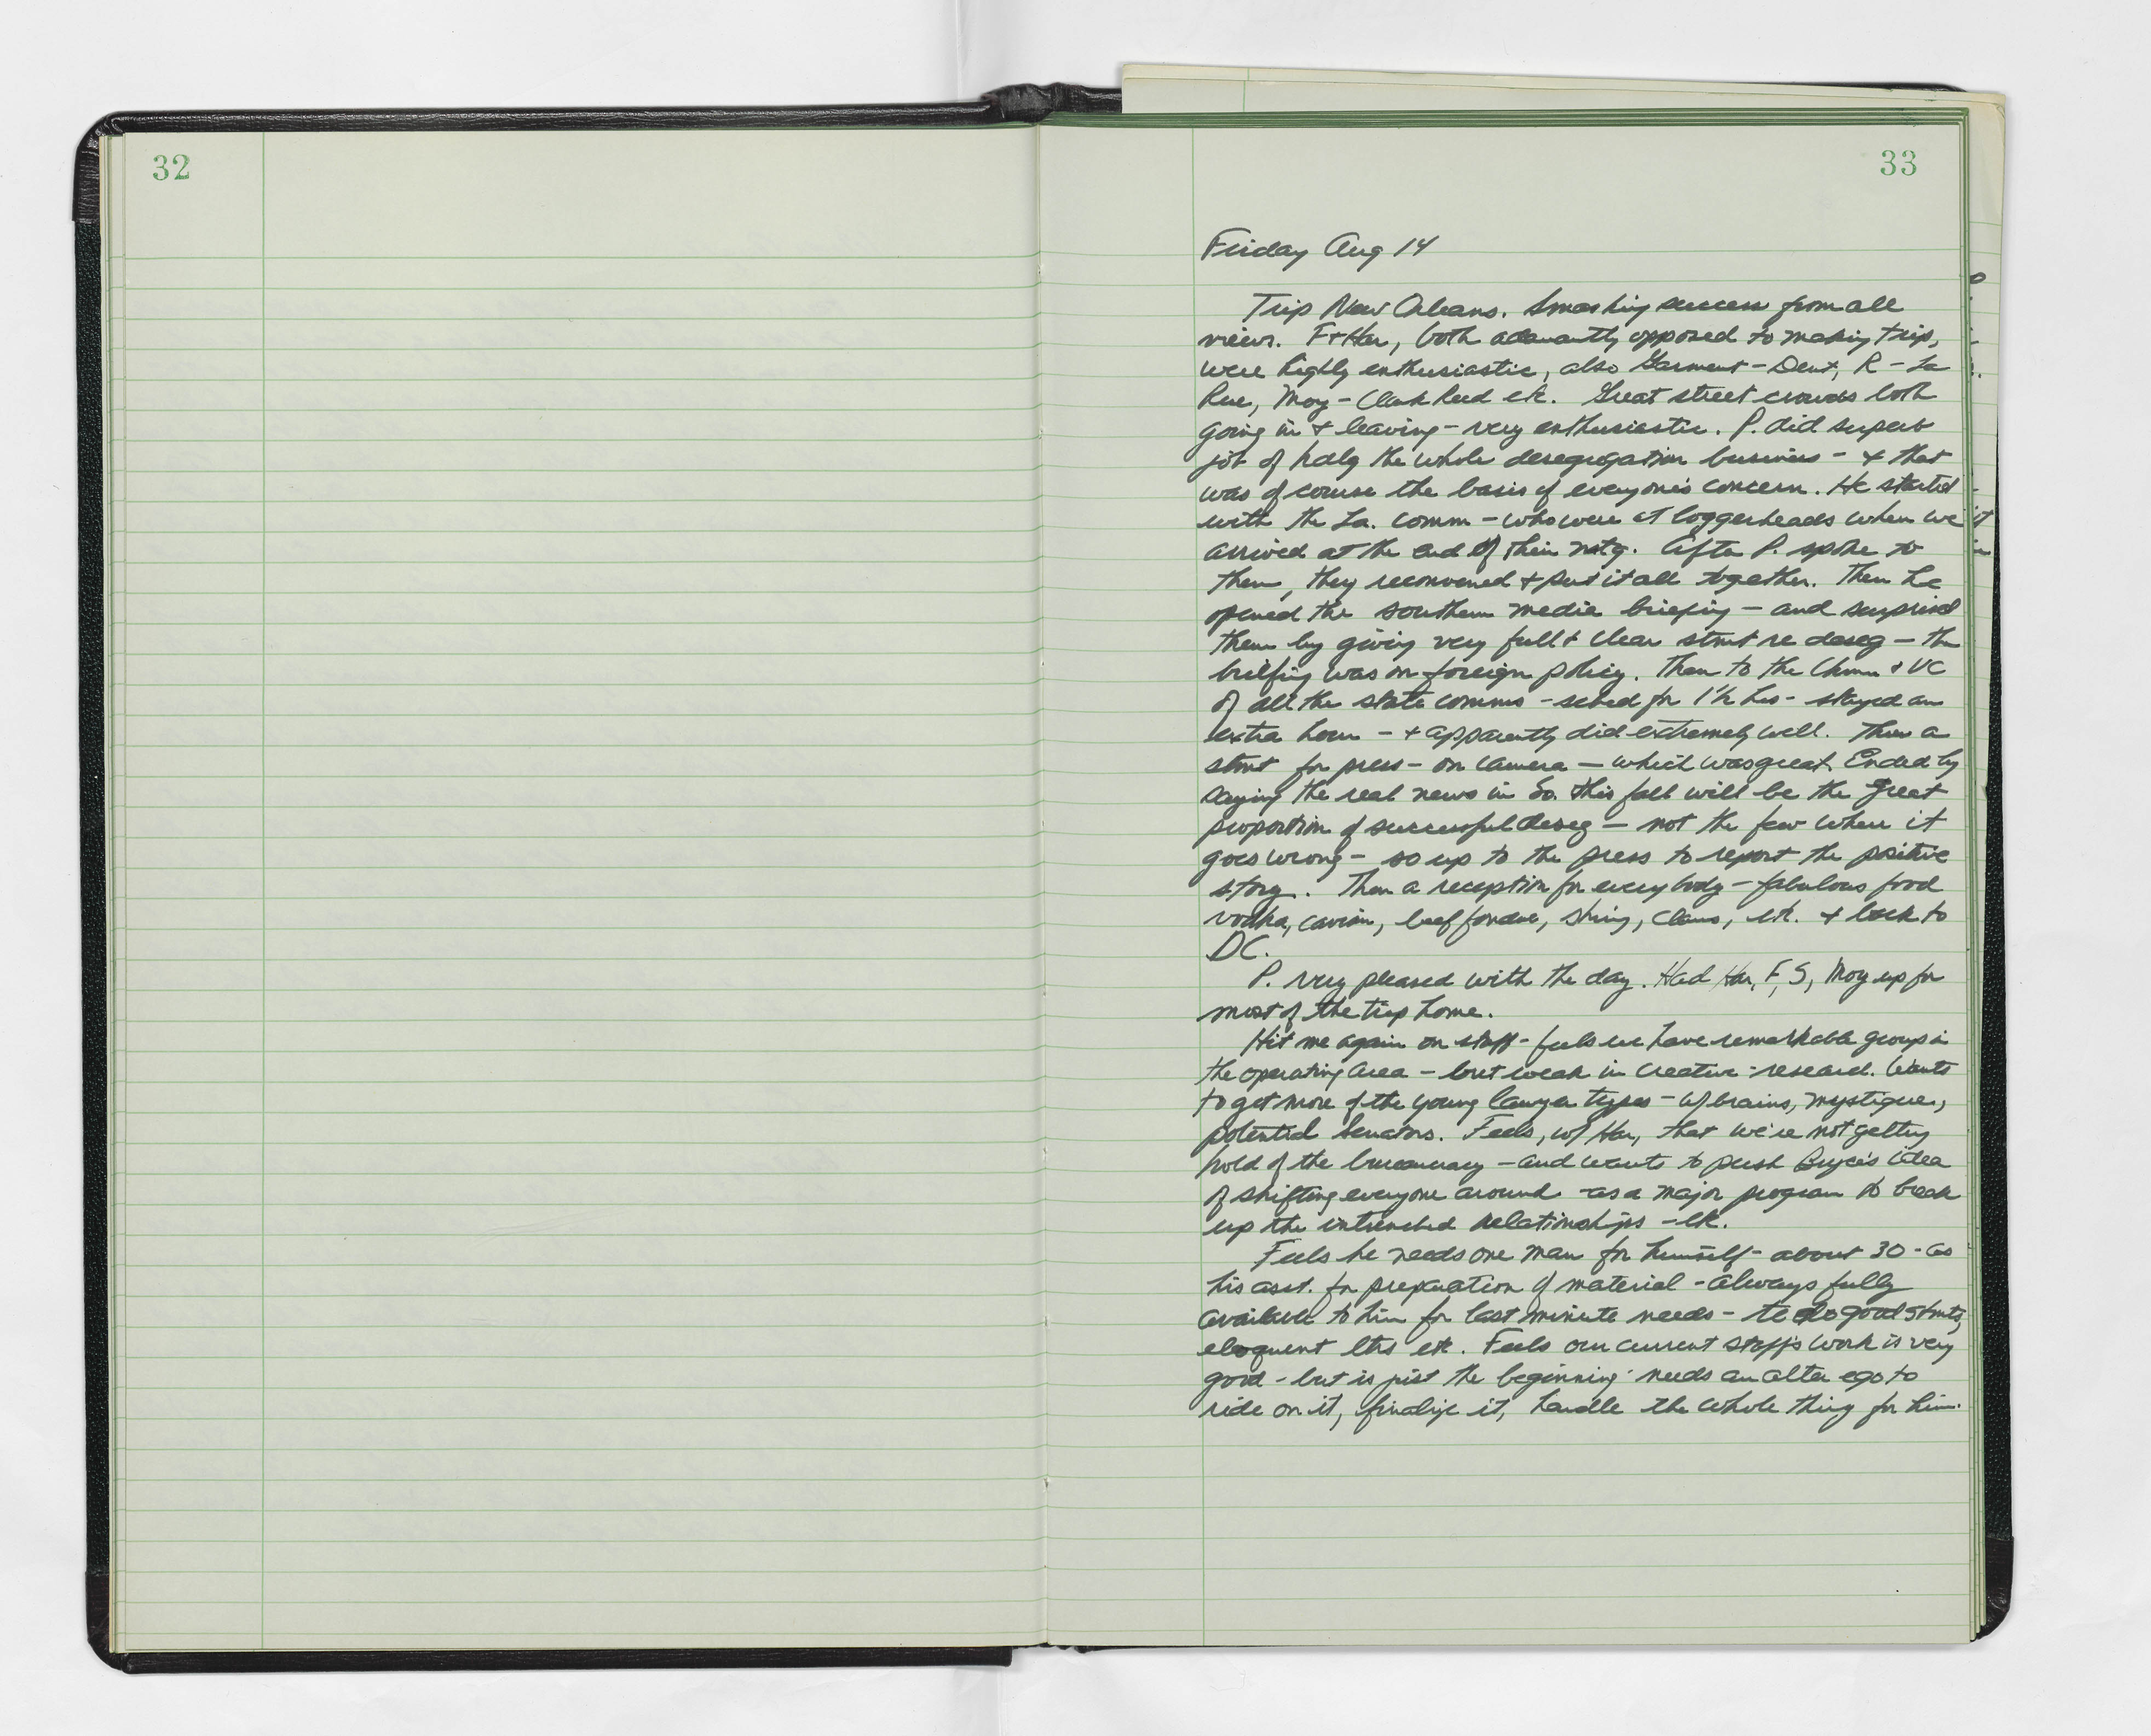 32
33
Friday Aug 14
Trip New Orleans. Smashing success from all
views. E + Har, both adamantly opposed to making trip,
were highly enthusiastic, also Garment - Dent, R - La
Rue, Moy - Clark Reed etc. Great street crowds both
going in & leaving - very enthusiastic. P. did superb
job of hdlg the whole desegregation business - & that
was of course the basis of everyone's concern. He started
with the La. comm - who were at loggerheads when we
arrived at the end of their mtg. After P. spoke to
them, they reconvened & put it all together. Then he
opened the southern media briefing - and surprised
them by giving very full & clear stmt re deseg - the
briefing was on foreign policy. Then to the Chmn & VC
of all the state comms - sched for 1½ hrs - stayed an
extra hour - & apparently did extremely well. Then a
stmt for press - on camera - which was great. Ended by
saying the real news in So. this fall will be the great
proportion of successful deseg - not the few where it
goes wrong - so up to the press to report the positive
story. Then a reception for everybody - fabulous food
vodka, caviar, beef fondue, shrimp, clams, etc. & back to
DC.
P. very pleased with the day. Had Har, E, S, Moy up for
most of the trip home.
Hit me again on staff - feels we have remarkable group in
the operating area - but weak in creative - research. Wants
to get more of the young lawyer types - w/ brains, mystique,
potential Senators. Feels, w/ Har, that we're not getting
hold of the bureaucracy - and wants to push Bryce's idea
of shifting everyone around - as a major program to break
up the intrenched relationships - etc.
Feels he needs one man for himself - about 30 - as
his asst. for preparation of material - always fully
available to him for last minute needs - to do good stmts,
eloquent ltrs etc. Feels our current staff's work is very
good - but is just the beginning - needs an alter ego to
ride on it, finalize it, handle the whole thing for him.